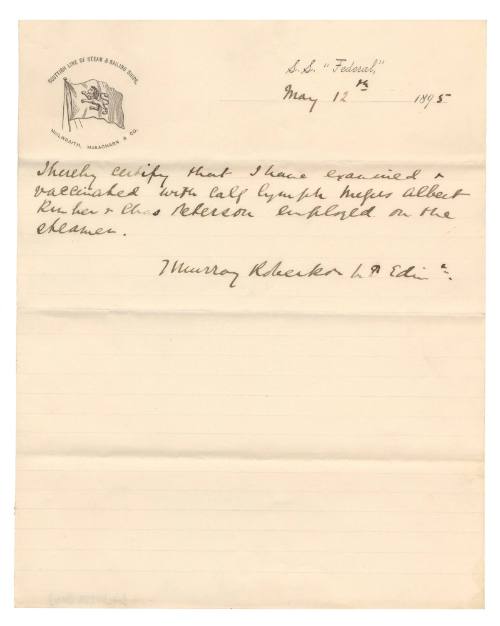 SCOTTISH LINE OF STEAM & SAILING SHIPS,
McILWRAITH, McEACHARN & CO.
S.S. "Federal,"
May 12th 1895
I hereby certify that I have examined &
vaccinated with Calf Lymph Messrs Albert
& Chas Peterson employed on the
steamer.
Murray Robertson Edin